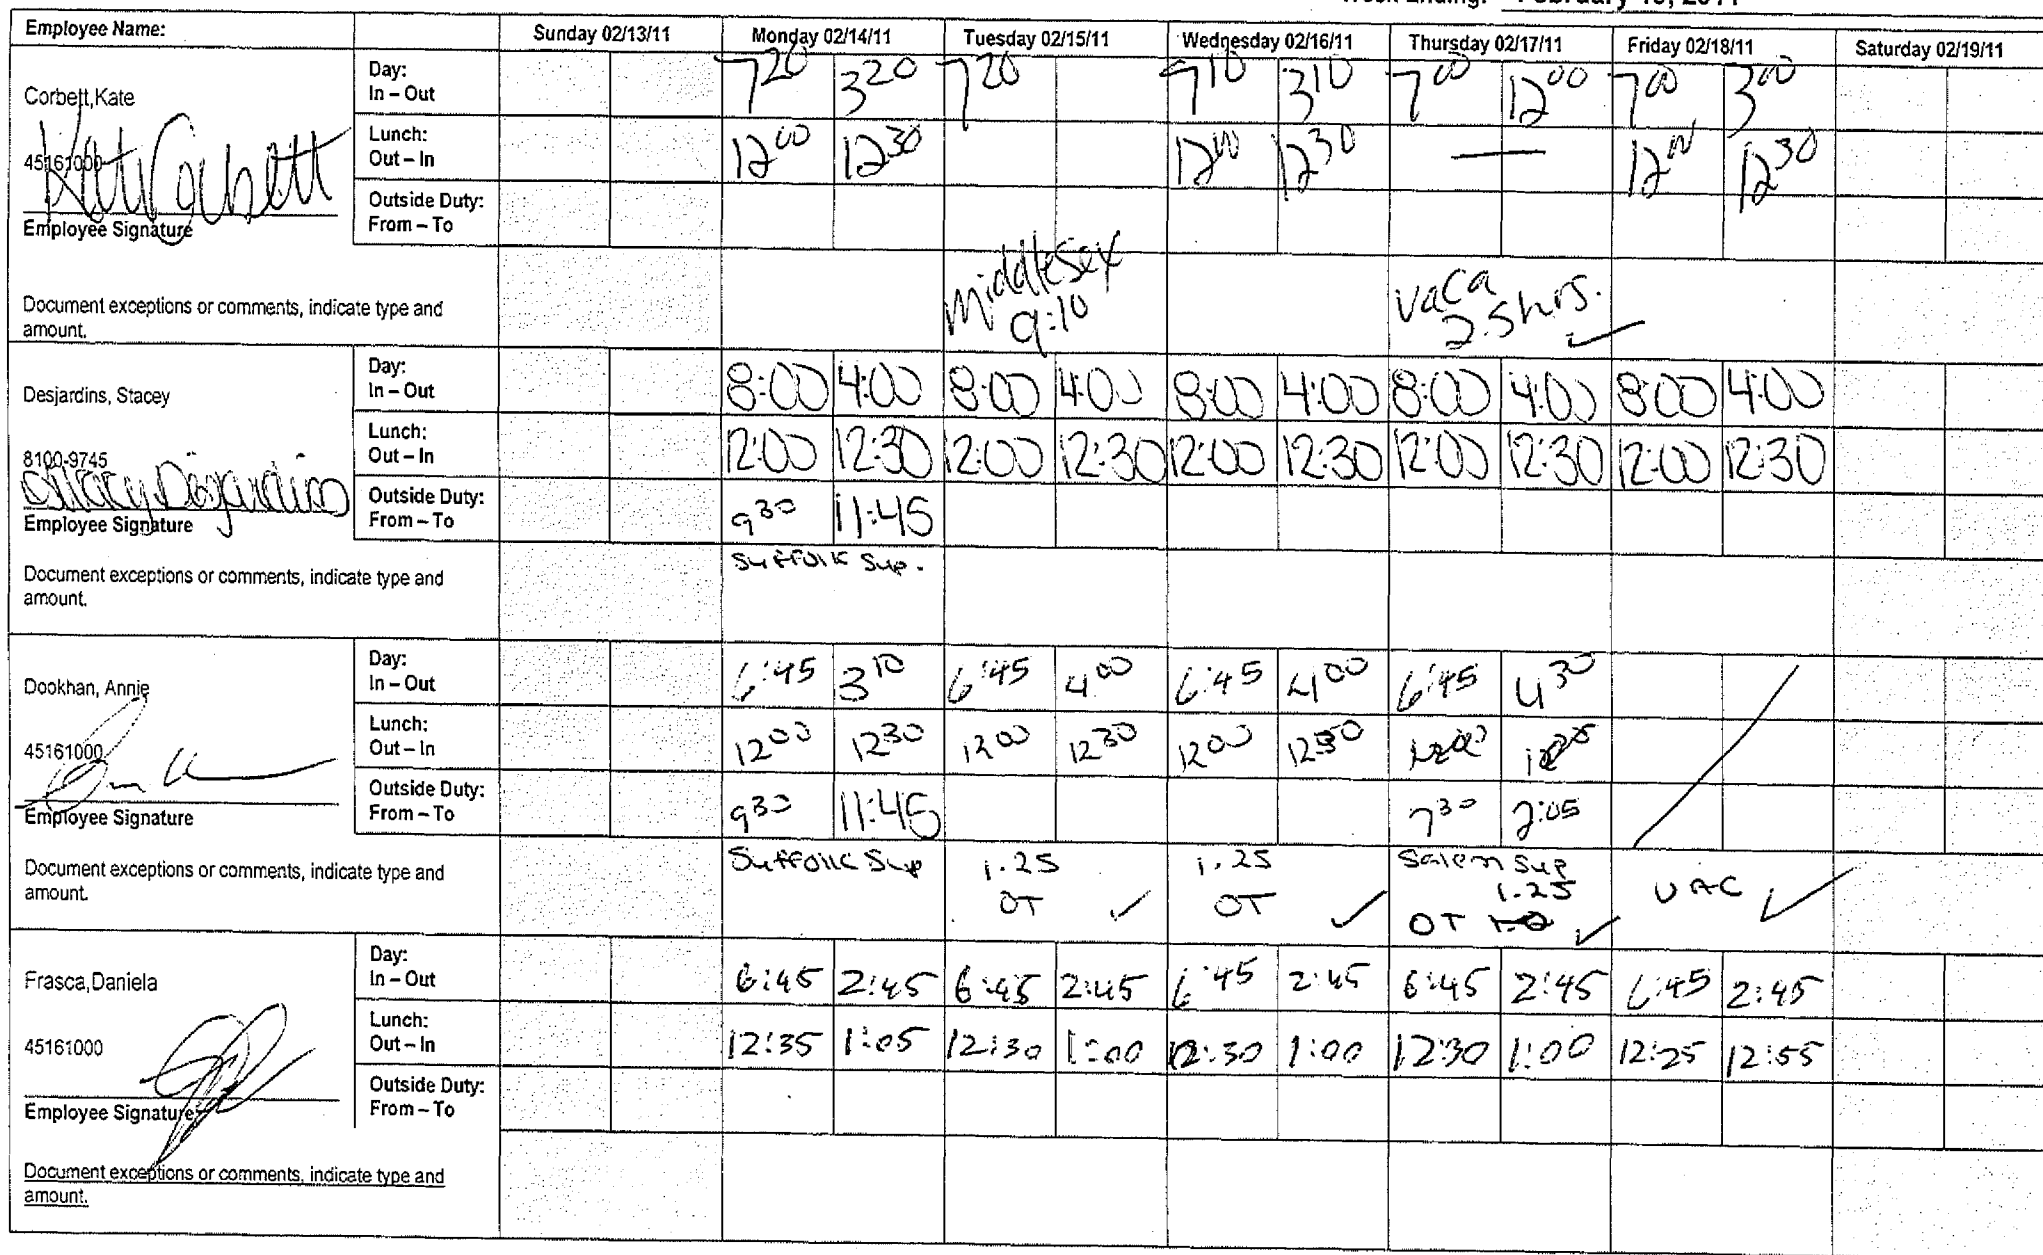 Employee Name: Sunday 02/13/11 Monday 02/14/11 Tuesday 02/15/11 Wednesday 02/16/11 Thursday 02/17/11 Friday 02/18/11 Saturday 02/19/11
Corbett,Kate
45161000
Kate Corbett
Employee Signature
Day: In – Out 7 20 3 20 7 20 9 10 3 10 7 00 12 00 7 00 3 00
Lunch: Out – In 12 00 12 30 12 00 12 30 — 12 00 12 30
Outside Duty: From – To
Document exceptions or comments, indicate type and
amount.
Middlesex
9:10
vaca
2.5 hrs. ✓
Desjardins, Stacey
8100-9745
Stacey Desjardins
Employee Signature
Day: In – Out 8:00 4:00 8:00 4:00 8:00 4:00 8:00 4:00 8:00 4:00
Lunch: Out – In 12:00 12:30 12:00 12:30 12:00 12:30 12:00 12:30 12:00 12:30
Outside Duty: From – To 9 30 11:45
Document exceptions or comments, indicate type and
amount.
Suffolk Sup.
Dookhan, Annie
45161000
Employee Signature
Day: In – Out 6:45 3 10 6:45 4 00 6:45 4 00 6:45 4 30
Lunch: Out – In 12 00 12 30 12 00 12 30 12 00 12 30
Outside Duty: From – To 9 30 11:45 7 30 2:05
Document exceptions or comments, indicate type and
amount.
Suffolk Sup
1.25
OT ✓
1.25
OT ✓
Salem Sup
1.25
OT ✓
VAC ✓
Frasca,Daniela
45161000
Employee Signature
Day: In – Out 6:45 2:45 6:45 2:45 6:45 2:45 6:45 2:45 6:45 2:45
Lunch: Out – In 12:35 1:05 12:30 1:00 12:30 1:00 12:30 1:00 12:25 12:55
Outside Duty: From – To
Document exceptions or comments, indicate type and
amount.